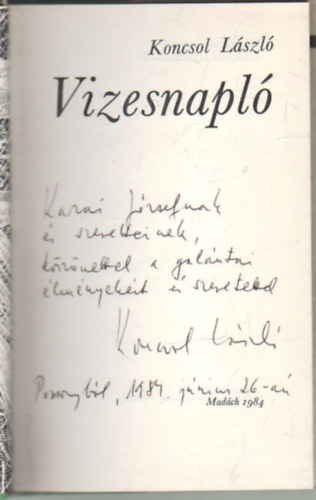 Koncsol László
Vizesnapló
Karai Józsefnak
és szeretteinek,
köszönettel a galántai
élményekért és szeretettel
Koncsol László
Pozsonyból, 1984. június 26-án
Madách 1984